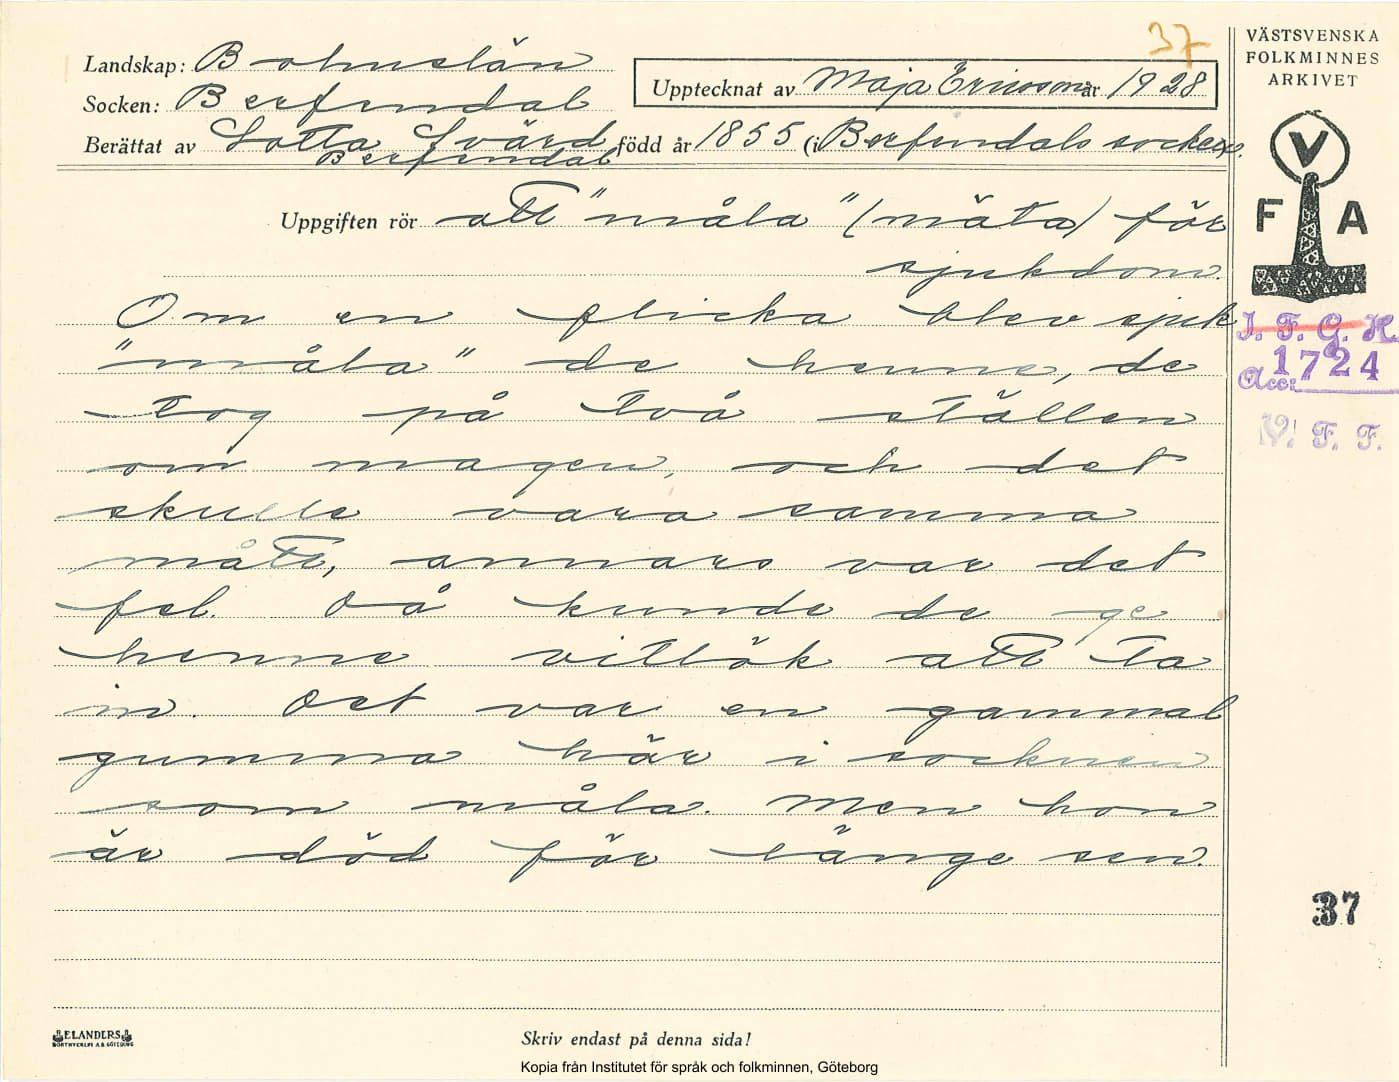 37
VÄSTSVENSKA
FOLKMINNES
ARKIVET
Landskap: Bohuslän
Socken: Berfendal
Upptecknat av Maja Ericsson år 1928
Berättat av Lotta Svärd född år 1855 (i Berfendals socken.
Berfendal
Uppgiften rör att "måla" (mäta) för
sjukdom.
V
F A
Om en flicka blev sjuk
"måla" de henne, de
tog på två ställen
om magen, och det
skulle vara samma
mått, annars var det
fel. Då kunde de ge
henne vitlök att ta
in. Det var en gammal
gumma här i socknen
som måla. Men hon
är död för länge sen.
I. F. G. H.
Acc: 1724
V. F. F.
37
ELANDERS
BOKTRYCKERI A.B. GÖTEBORG
Skriv endast på denna sida!
Kopia från Institutet för språk och folkminnen, Göteborg